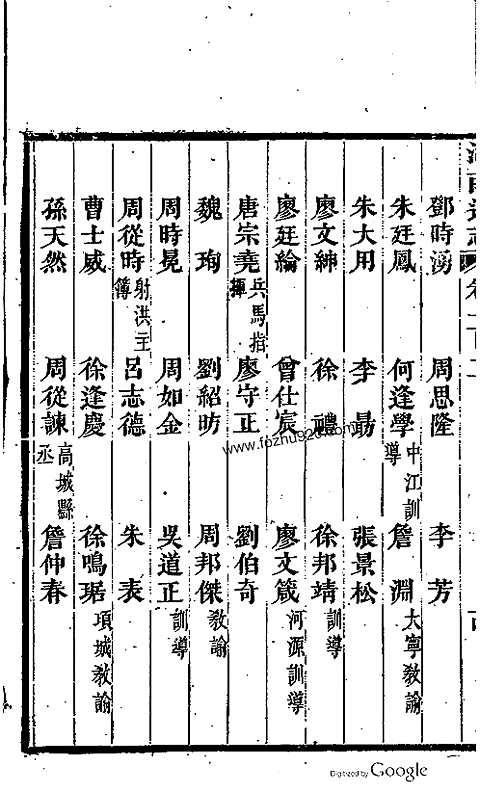 鄧時湧 周思隆 李芳
朱廷鳳 何逢學 中江訓導 詹淵 大寧教諭
朱大用 李勗 張景松
廖文紳 徐禮 徐邦靖 訓導
廖廷綸 曾仕宸 廖文箴 河源訓導
唐宗堯 兵馬指揮 廖守正 劉伯奇
魏珣 劉紹昉 周邦傑 教諭
周時晃 周如金 吳道正 訓導
周從時 射洪主簿 呂志德 朱表
曹士威 徐逢慶 徐鳴琚 項城教諭
孫天然 周從諫 高城縣丞 詹仲春
www.fozhu920.com
Digitized by Google